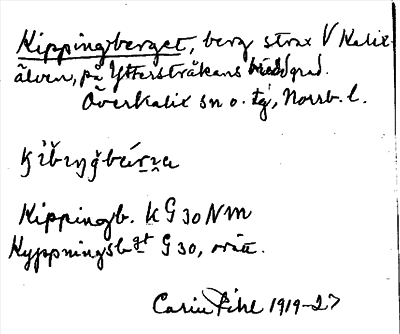 Kippingsberget, berg strax V Kalix
älven, på Ytterstråkans grad.
Överkalix sn o. tg, Norrb. l.
Kippingb. k G 30 NM
Kyppningsbgt G 30, orätt.
Carin Pihl 1919-27